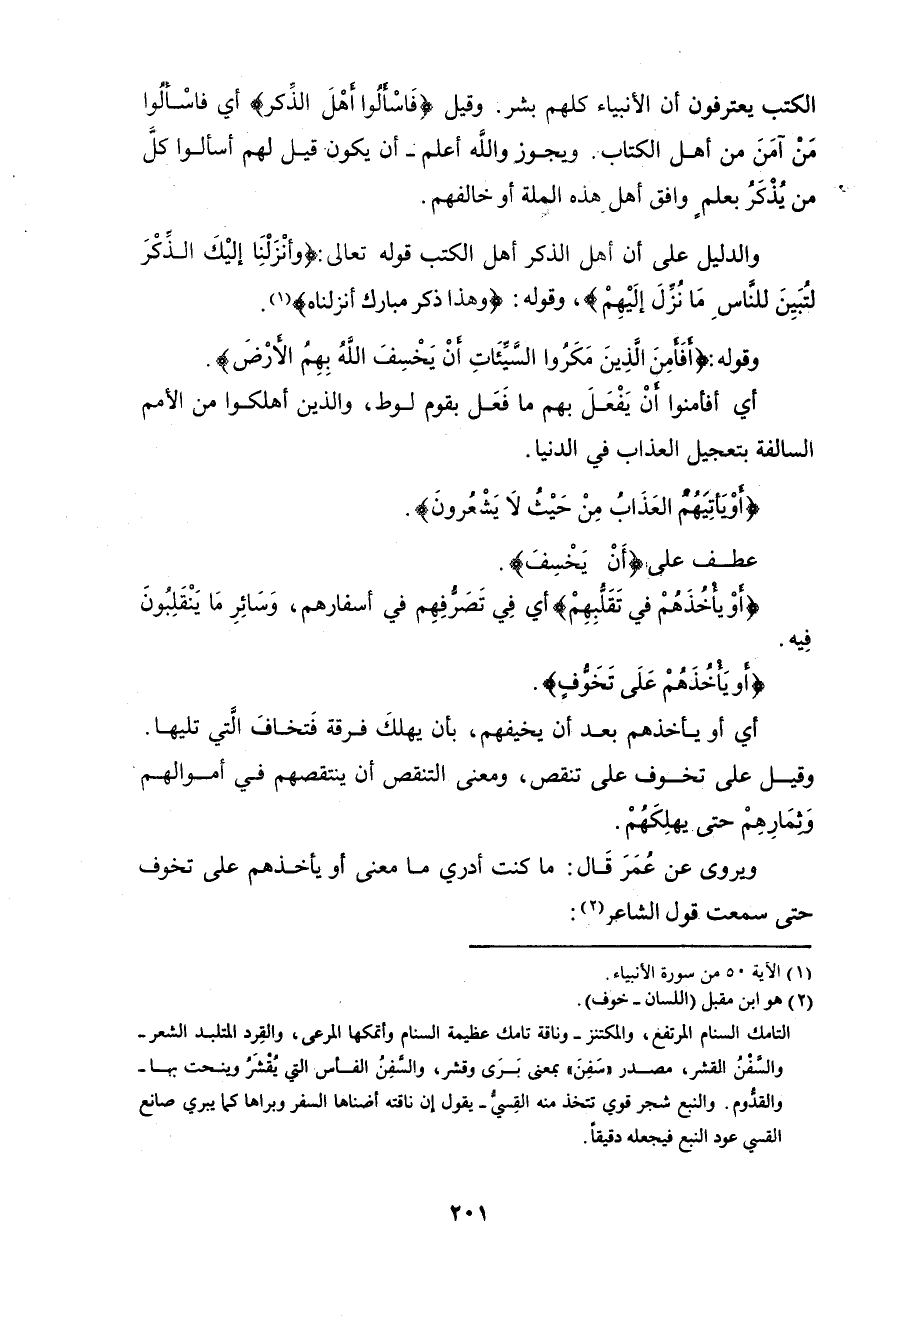 الكتب يعترفون أن الأنبياء كلهم بشر. وقيل ﴿فَاسْأَلُوا أَهْلَ الذِّكر﴾ أي فاسْألُوا
مَنْ آمَنَ من أهل الكتاب. ويجوز والله أعلم - أن يكون قيل لهم أسألوا كلَّ
من يُذْكَرُ بعلمٍ وافق أهل هذه الملة أو خالفهم.
والدليل على أن أهل الذكر أهل الكتب قوله تعالى:﴿وأنْزَلْنَا إليْكَ الذِّكْرَ
لتُبَيِنَ للنَّاسِ مَا نُزِّلَ إلَيْهِمْ﴾، وقوله: ﴿وهذا ذكر مبارك أنزلناه﴾(١).
وقوله:﴿أَفَأَمِنَ الَّذِينَ مَكَرُوا السَّيِّئَاتِ أَنْ يَخْسِفَ اللَّهُ بِهِمُ الأَرْضَ﴾.
أي أفأمنوا أَنْ يَفْعَلَ بهم ما فَعَل بقوم لوط، والذين أهلكوا من الأمم
السالفة بتعجيل العذاب في الدنيا.
﴿أَوْيَأتِيَهُمُ العَذَابُ مِنْ حَيْثُ لَا يَشْعُرونَ﴾.
عطف على﴿أَنْ يَخْسِفَ﴾.
﴿أَوْ يأْخُذَهُمْ في تَقَلُّبِهِمْ﴾أي فِي تَصَرُّفِهِم في أسفارهم، وَسَائِرِ مَا يَنْقَلِبُونَ
فِيه.
﴿أَو يَأْخُذَهُمْ عَلَى تَخَوُّفٍ﴾.
أي أو يأخذهم بعد أن يخيفهم، بأن يهلكَ فرقة فَتخافَ الَّتي تليها.
وقيل على تخوف على تنقص، ومعنى التنقص أن ينتقصهم في أموالهم
وَثِمَارِهِمْ حتى يهلِكَهُمْ.
ويروى عن عُمَرَ قَال: ما كنت أدري ما معنى أو يأخذهم على تخوف
حتى سمعت قول الشاعر(٢):
(١) الآية ٥٠ من سورة الأنبياء.
(٢) هو ابن مقبل (اللسان - خوف).
التامك السنام المرتفع، والمكتنز - وناقة تامك عظيمة السنام وأتمكها المرعى، والقِرد المتلبد الشعر -
والسَّفْنُ القشر، مصدر «سَفِنَ» بمعنى بَرَى وقشر، والسَّفِنُ الفأس التي يُقْشَرُ وينحت بها -
والقدُّوم. والنبع شجر قوي تتخذ منه القِسيُّ - يقول إن ناقته أضناها السفر وبراها كما يبري صانع
القسي عود النبع فيجعله دقيقاً.
٢٠١